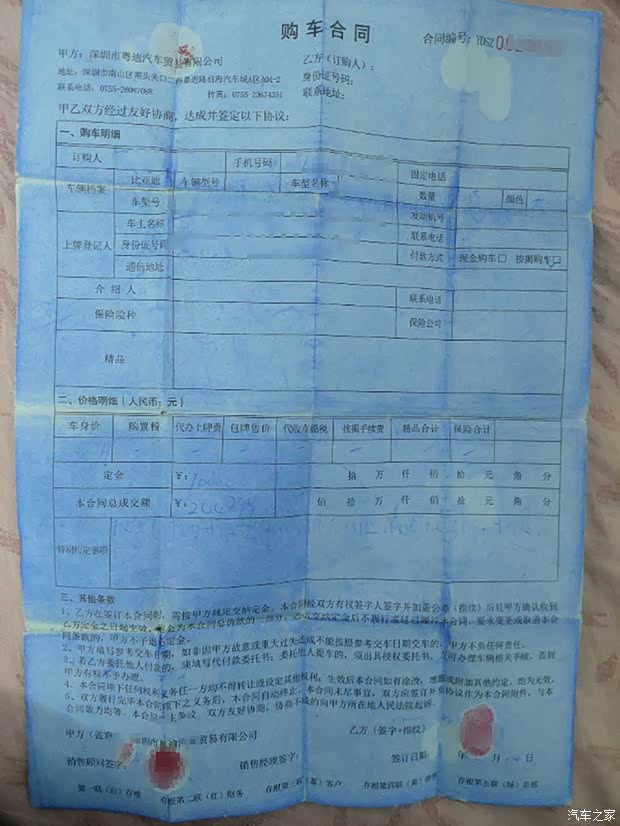 购车合同
合同编号: YDSZ
甲方: 深圳市粤迪汽车贸易有限公司
乙方(订购人):
地址: 深圳市南山区南头关口 粤进隆前海汽车城A区A04-2
身份证号码:
联系电话: 0755-26067088 传真: 0755-23674351
联系地址:
甲乙双方经过友好协商, 达成并签定以下协议:
一、购车明细
订购人 手机号码 固定电话
车辆档案 比亚迪 车辆型号 车型名称 数量 颜色
车架号 发动机号
上牌登记人 车主名称 联系电话
身份证号码 付款方式 现金购车□ 按揭购车□
通信地址
介绍人 联系电话
保险险种 保险公司
精品
二、价格明细 (人民币: 元)
车身价 购置税 代办上牌费 包牌售价 代收车船税 按揭手续费 精品合计 保险合计
定金 ¥: 10000 拾 万 仟 佰 拾 元 角 分
本合同总成交额 ¥: 佰 拾 万 仟 佰 拾 元 角 分
特别约定事项
三、其他条款
1、乙方在签订本合同时, 需按甲方规定交纳定金。本合同经双方有权签字人签字并加盖公章(指纹)后且甲方确认收到
乙方定金之日起生效。定金为本合同总价款的一部分。乙方交纳定金后不履行或迟延履行本合同, 要求变更或取消本合
同条款的, 甲方不予退还定金。
2、甲方填写参考交车日期, 如非因甲方故意或重大过失造成不能按照参考交车日期交车的, 甲方不负任何责任。
3、若乙方委托他人付款的, 须填写代付款委托书; 委托他人提车的, 须出具授权委托书, 方可办理车辆相关手续, 否则
甲方有权不予办理。
4、本合同项下任何权利义务任一方均不得转让或设定其他权利; 生效后本合同如有涂改、增删或附加其他约定, 均为无效。
5、双方履行完毕本合同项下之义务后, 本合同自动终止。本合同未尽事宜, 双方应签订补充协议作为本合同附件, 与本
合同效力均等。本合同 争议, 双方友好协商, 协商不成的向甲方所在地人民法院起诉。
甲方(盖章 贸易有限公司
乙方(签字+指纹)
销售顾问签字: 销售经理签字: 签订日期: 年 月 日
第一联(白)存根 存根第二联(红)财务 存根第三联(蓝)客户 存根第四联(黄) 存根第五联(绿)总部
汽车之家